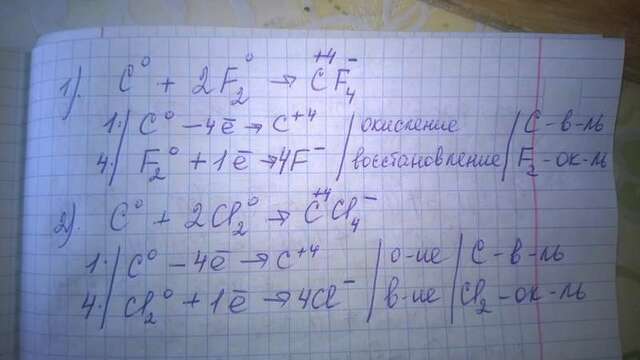 1). C⁰ + 2F₂⁰ → C⁺⁴F₄⁻
1·| C⁰ – 4ē → C⁺⁴ | окисление | C – в – ль
4·| F₂⁰ + 1ē → 4F⁻ | восстановление | F₂ – ок – ль
2). C⁰ + 2Cl₂⁰ → C⁺⁴Cl₄⁻
1·| C⁰ – 4ē → C⁺⁴ | о-ие | C – в – ль
4·| Cl₂⁰ + 1ē → 4Cl⁻ | в-ие | Cl₂ – ок – ль